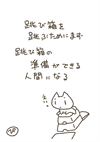 跳び箱を
跳ぶためにまず
跳び箱の
準備ができる
人間になる